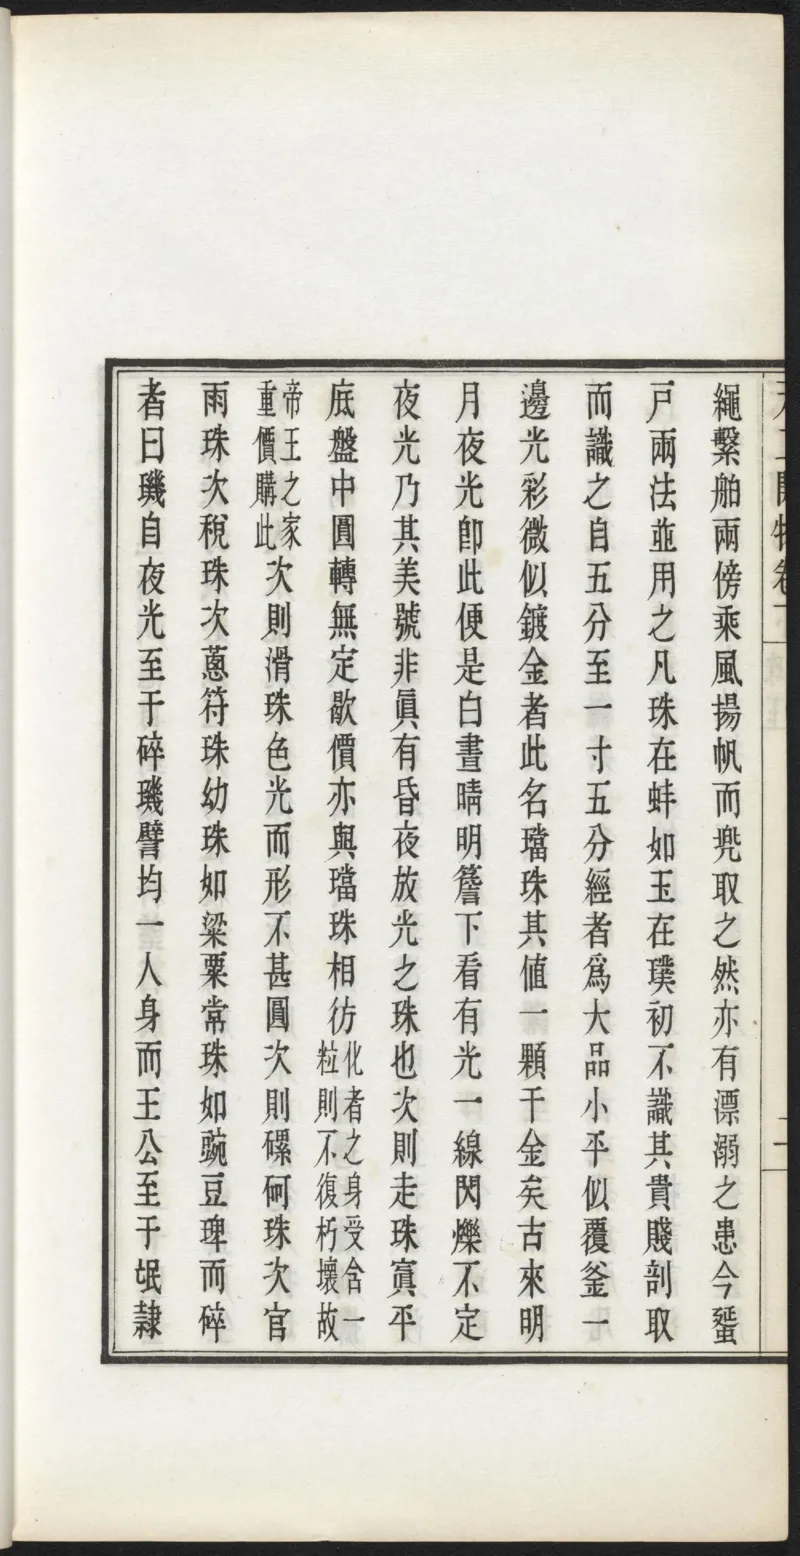 天工開物卷下
珠玉
二
繩繫舶兩傍乘風揚帆而兠取之然亦有漂溺之患今蜑
戸兩法並用之凡珠在蚌如玉在璞初不識其貴賤剖取
而識之自五分至一寸五分經者爲大品小平似覆釜一
邊光彩微似鍍金者此名璫珠其値一顆千金矣古來明
月夜光卽此便是白晝晴明簷下看有光一線閃爍不定
夜光乃其美號非眞有昏夜放光之珠也次則走珠寘平
底盤中圓轉無定歇價亦與璫珠相彷化者之身受含一粒則不復朽壞故
帝王之家重價購此次則滑珠色光而形不甚圓次則螺砢珠次官
雨珠次稅珠次蔥符珠幼珠如粱粟常珠如豌豆琕而碎
者曰璣自夜光至于碎璣譬均一人身而王公至于氓隷